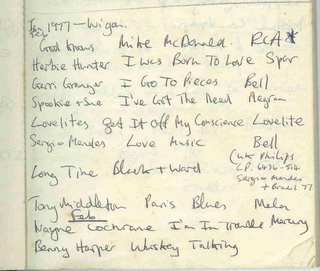 Jan 1977 - Wigan.
God knows. Mike McDonald. RCA*
Herbie Hunter I Was Born To Love Spar
Gerri Granger I Go To Pieces Bell
Spookie + Sue I've Got The Need
Lovelites Get It Off My Conscience Lovelite
Sergio Mendes Love Music Bell
(UK Philips
L.P. 6436-514
Sergio Mendes
+ Brasil 77
Long Time Black + Ward
Tony Middleton Paris Blues Mala
Feb
Wayne Cochrane I'm In Trouble Mercury
Benny Harper Whiskey Talking